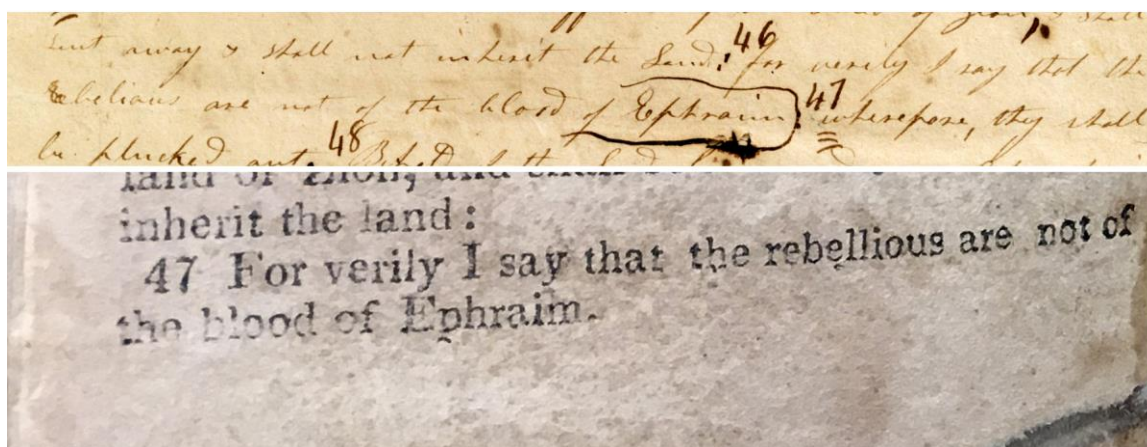 of Zion, & shall
sent away & shall not inherit the Land: 46 for verily I say that the
Rebelious are not of the blood of Ephraim: 47 wherefore, they shall
be plucked out. 48
land of Zion, and shall
inherit the land:
47 For verily I say that the rebellious are not of
the blood of Ephraim.